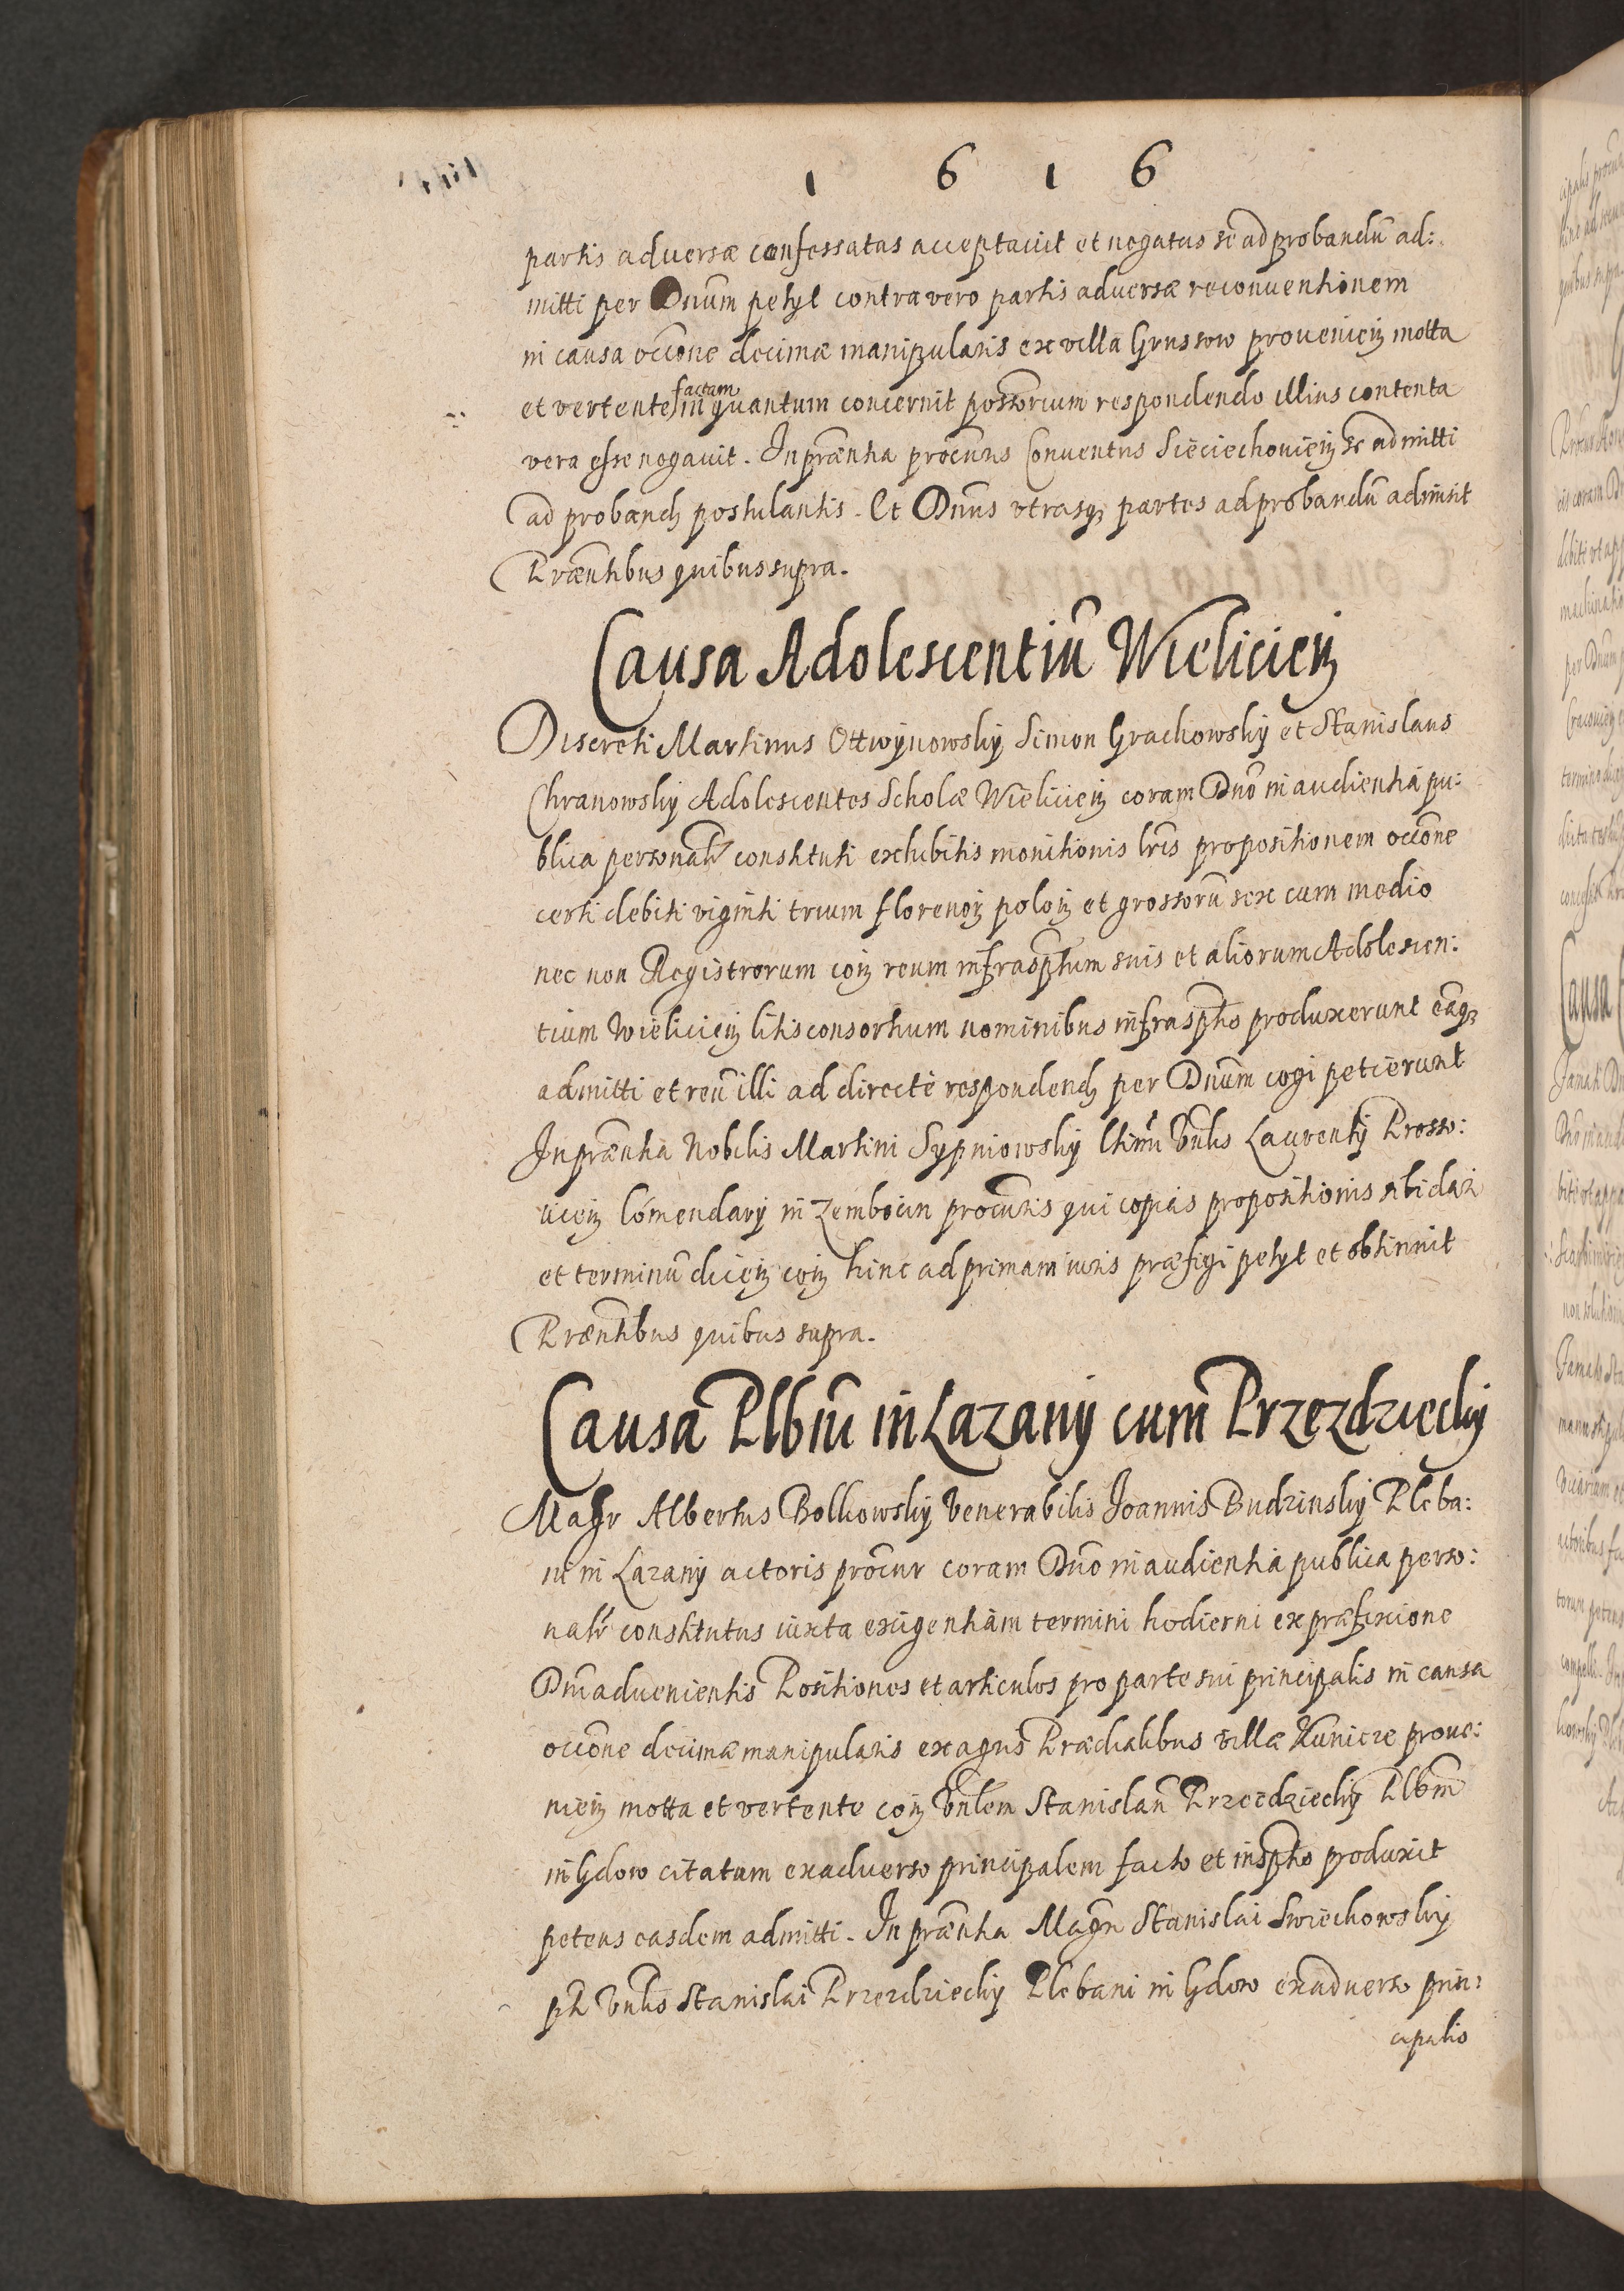 1 6 1 6
partis adversæ confessatas acceptavit et negatas se ad probandũ ad:
mitti per Dnum petyt contra vero partis adversæ reconventionem
in causa occõne decimæ manipularis ex villa Grussow provenieñ motta
et vertente factam in quantum concernit possõrium respondendo illius contenta
vera esse negavit. In præntia procuris Conventus Sieciechovieñ se admitti
ad proband postulantis. Et Dnus utrasq partes ad probandũ admisit
Præntibus quibus supra.
Causa Adolescentiũ Wielicieñ
Discreti Martinus Ottwynowsky Simon Grachowsky et Stanislaus
Chranowsky Adolescentes Scholæ Wielicieñ coram Dno in audientia pu:
blica personalr constituti exhibitis monitionis lris propositionem occõne
certi debiti viginti trium florenoꝝ poloñ et grossorũ sex cum medio
nec non Registrorum coñ reum infrasptum suis et aliorum Adolescen:
tium Wielicieñ litis consortium nominibus infraspto produxerunt eãq
admitti et reũ illi ad directe respondend per Dnum cogi petierunt
In præntia Nobilis Martini Sypniowsky Vnlis Laurentij Prosso:
vicieñ Cõmendarij in Zembocin procuris qui copias propositionis sibi dari
et terminũ diceñ coñ hinc ad primam iuris præfigi petyt et obtinuit
Præntibus quibus supra.
Causa Plbni in Lazany cum Przezdziecky
Magr Albertus Bolkowsky Venerabilis Joannis Budzinsky Pleba:
ni in Lazany actoris procur coram Dno in audientia publica perso:
nalr constitutus iuxta exigentiam termini hodierni ex præfixione
Dni advenientis Positiones et articulos pro parte sui principalis in causa
occõne decimæ manipularis ex agris Prædialibus villæ Kunicze prove:
nieñ motta et vertente coñ Vnlem Stanislaũ Przezdziecky Plbm
in Gdow citatum ex adverso principalem facto et inspto produxit
petens easdem admitti. In præntia Magri Stanislai Swiechowsky
pr Vnlis Stanislai Przezdziecky Plebani in Gdow ex adverso prin:
cipalis